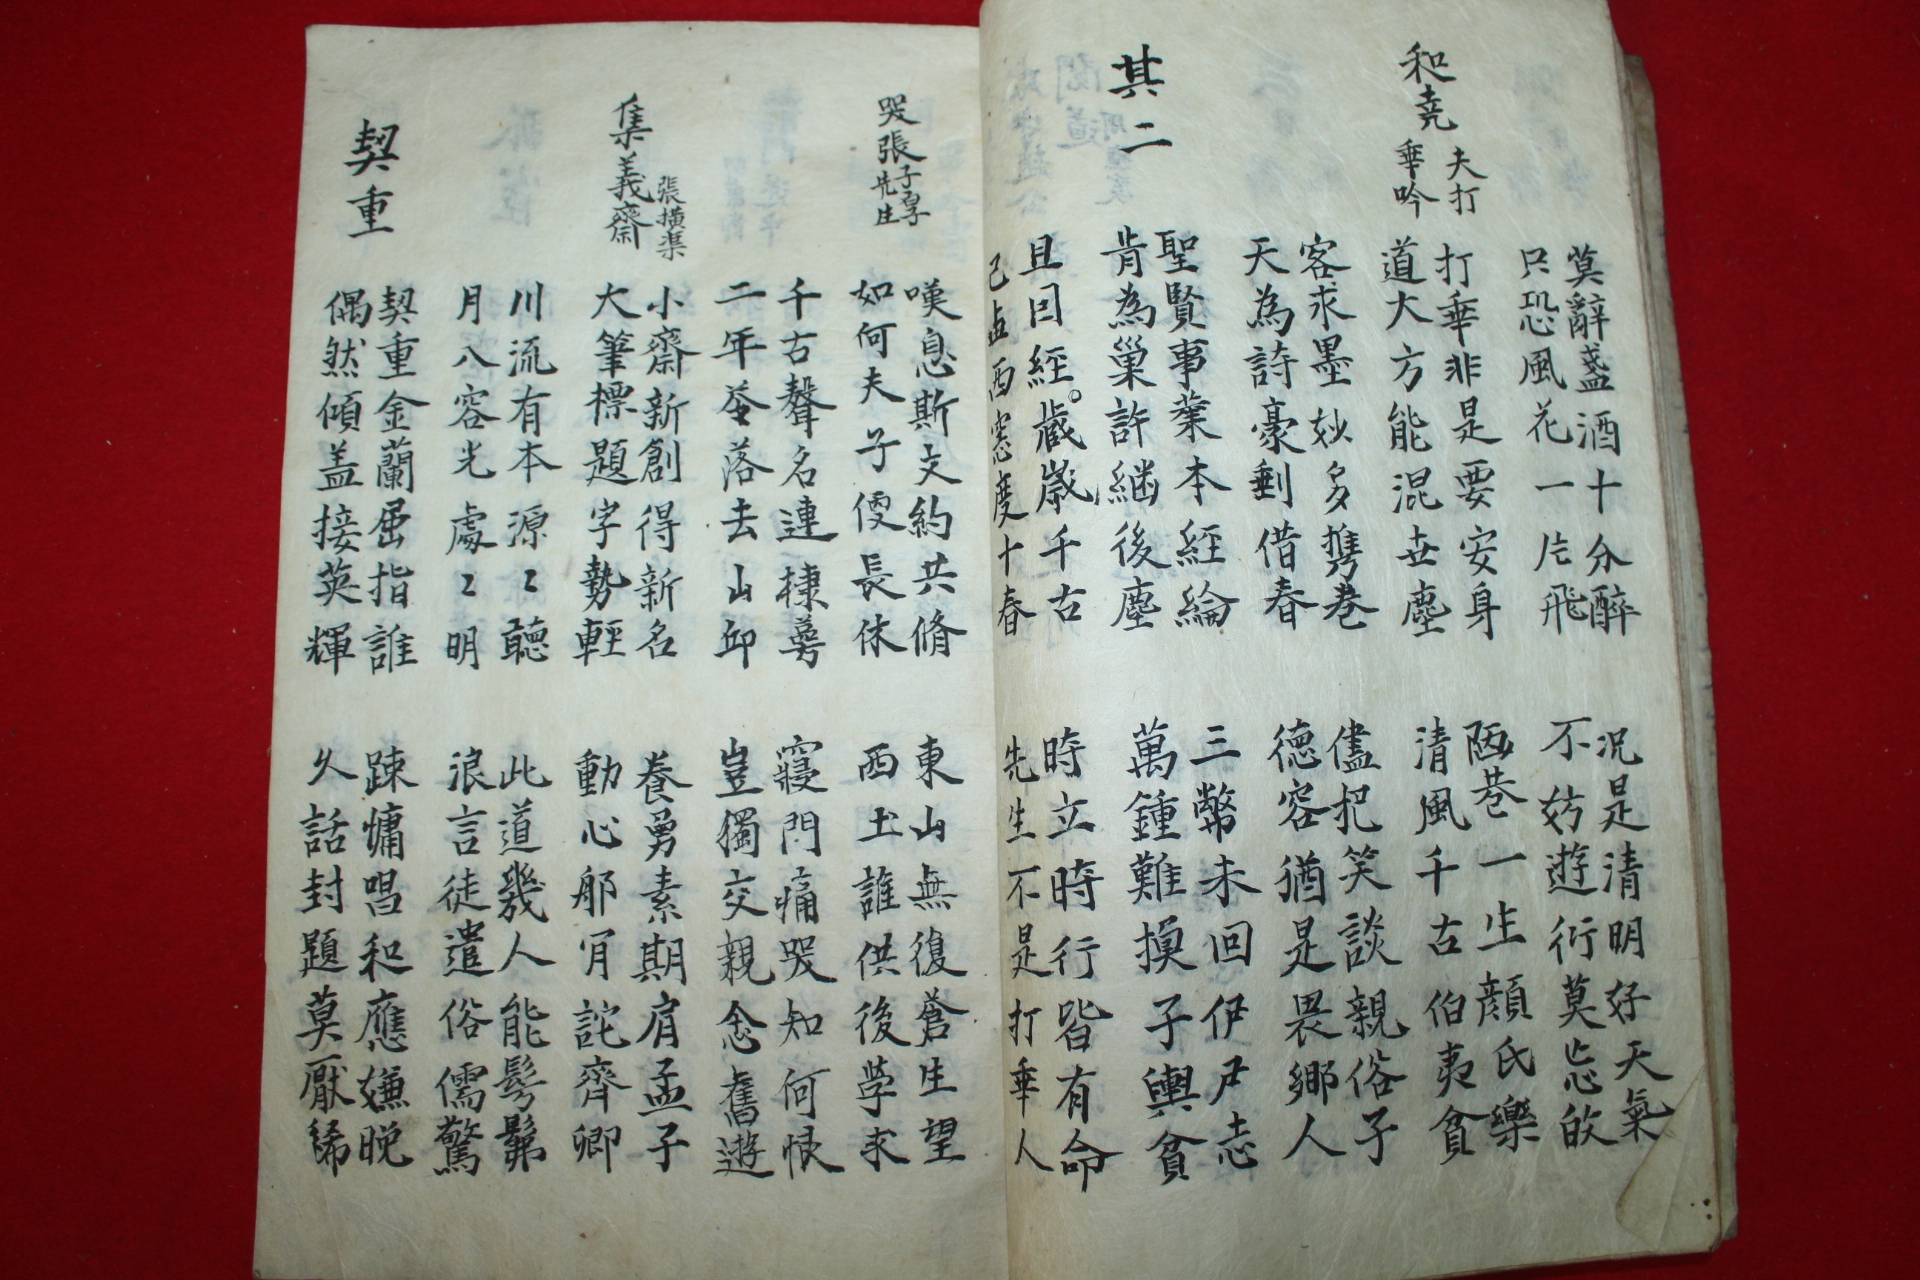 莫辭盞酒十分醉
只恐風花一片飛
況是清明好天氣
不妨遊衍莫忘歸
和堯夫打乖吟
打乖非是要安身
道大方能混世塵
陋巷一生顏氏樂
清風千古伯夷貧
客求墨妙多携卷
天為詩豪剩借春
儘把笑談親俗子
德容猶是畏鄉人
其二
聖賢事業本經綸
肯為巢許継後塵
三幣未回伊尹志
萬鍾難換子輿貧
且因經。嵗千古
已占西窓度十春
時立時行皆有命
先生不是打乖人
哭張子厚先生
嘆息斯文約共脩
如何夫子便長休
東山無復蒼生望
西土誰供後學求
千古聲名連棣萼
二年零落去山邱
寢門痛哭知何恨
豈獨交親念舊遊
集義齋
張橫渠
小齋新創得新名
大筆標題字勢輕
養勇素期肩孟子
動心那肎詫齊卿
川流有本源〻聽
月八容光處〻明
此道幾人能髣髴
浪言徒遣俗儒驚
契重
契重金蘭屈指誰
偶然傾盖接英輝
踈慵唱和應嫌晩
久話封題莫厭稀